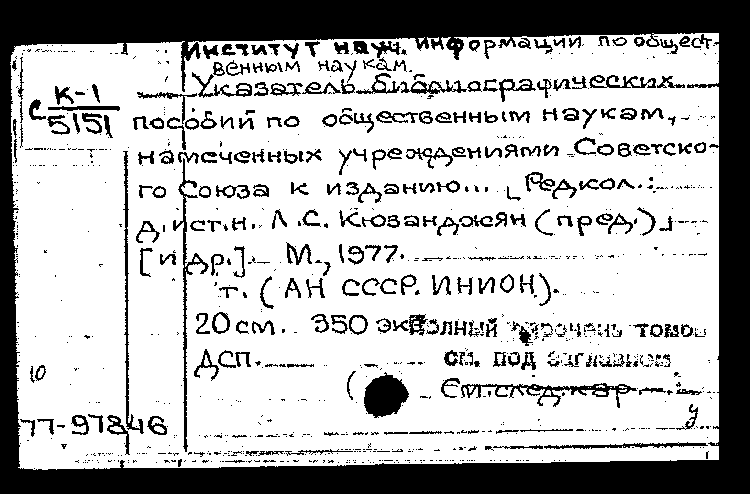 Институт науч. информации по общест-
венным наукам.
Указатель библиографических
С К-1
5151
пособий по общественным наукам,
намеченных учреждениями Советско-
го Союза к изданию... [Редкол.:
д. ист. н. Л. С. Кюзанджян (пред.)]
[и др.]. М., 1977.
т. (АН СССР. ИНИОН).
20 см. 350 экз
Полный перечень томов
ДСП.
см. под заглавием
См. след. кар
10
77-97846
у